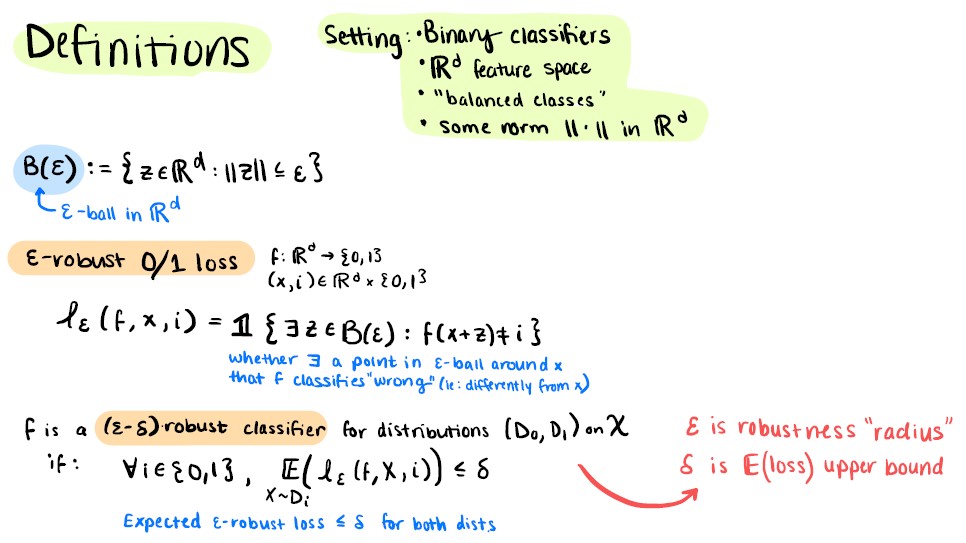 Definitions
Setting: • Binary classifiers
• ℝᵈ feature space
• "balanced classes"
• some norm ||·|| in ℝᵈ
B(ε) := {z∈ℝᵈ : ||z|| ≤ ε}
ε-ball in ℝᵈ
ε-robust 0/1 loss
f: ℝᵈ → {0,1}
(x,i) ∈ ℝᵈ × {0,1}
ℓ_ε (f, x, i) = 𝟙 {∃ z ∈ B(ε) : f(x+z) ≠ i}
whether ∃ a point in ε-ball around x
that f classifies "wrong" (ie: differently from x)
f is a (ε-δ)-robust classifier for distributions (D₀, D₁) on X
if: ∀i∈{0,1}, 𝔼_{X~Dᵢ}(ℓ_ε (f, X, i)) ≤ δ
Expected ε-robust loss ≤ δ for both dists
ε is robustness "radius"
δ is 𝔼(loss) upper bound